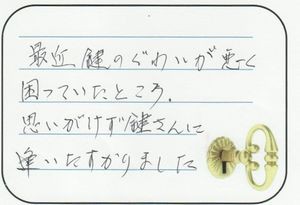 最近鍵のぐわいが悪く
困っていたところ.
思いがけず鍵さんに
逢いたすかりました